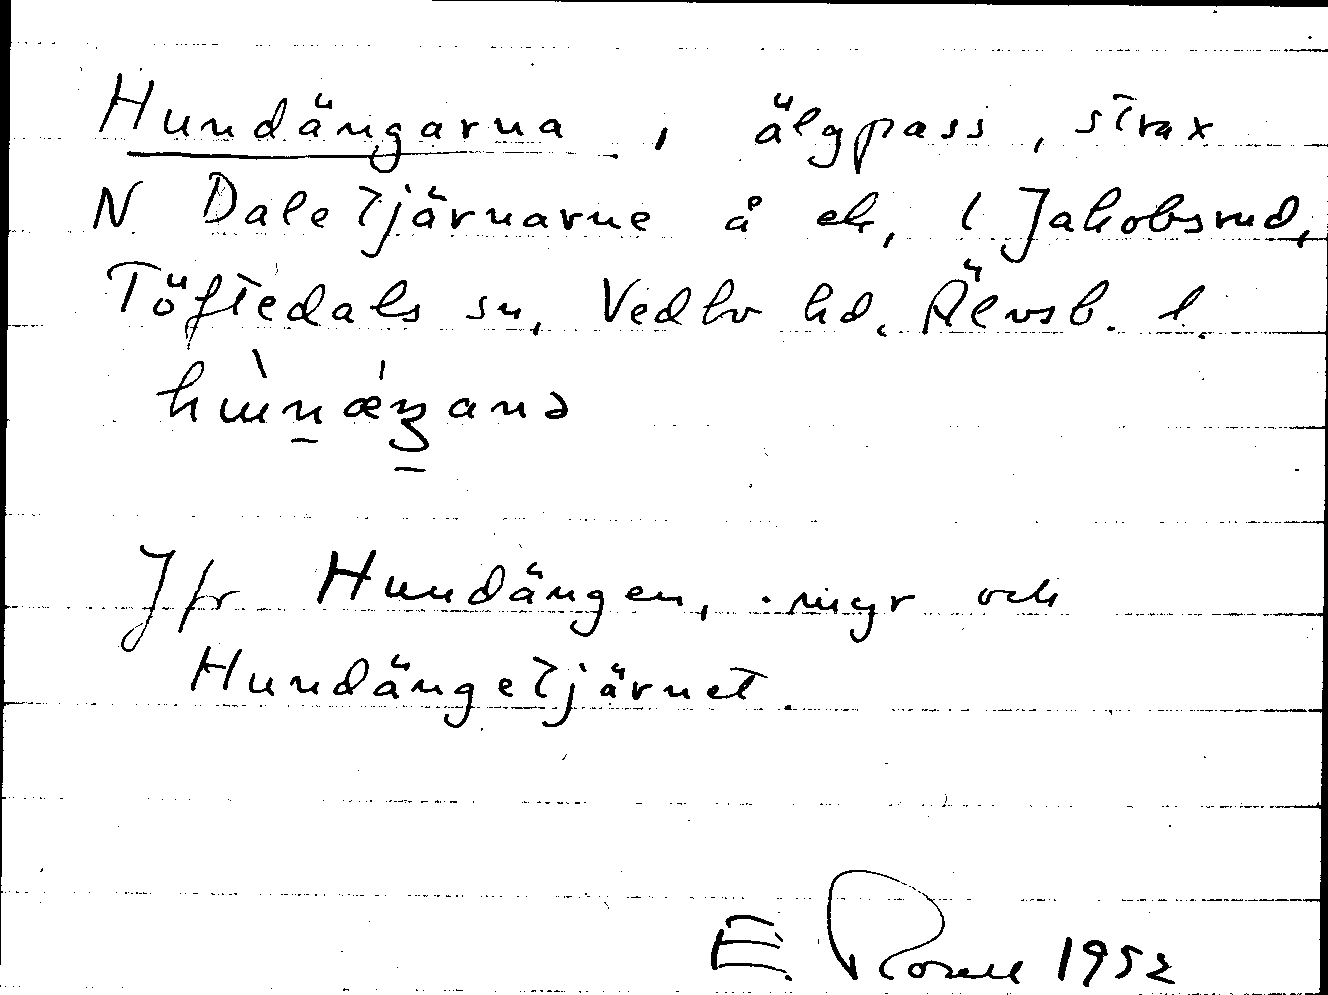 Hundängarna, älgpass, strax
N Daletjärnarne å ek, i Jakobsrud,
Töftedals sn, Vedbo hd. Älvsb. l.
Jfr Hundängen, myr och
Hundängetjärnet.
E. Rosell 1952